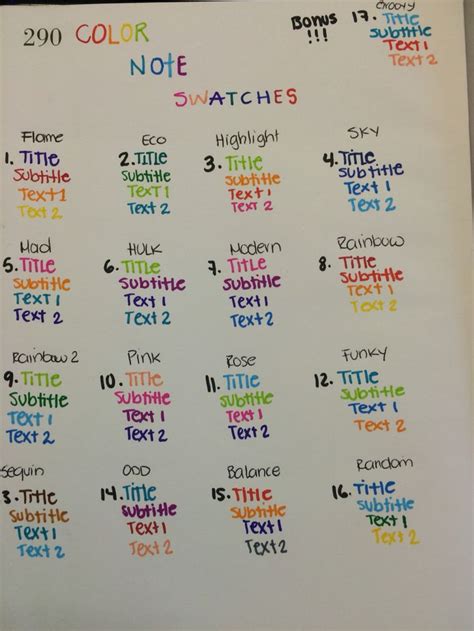 290 COLOR
NOtE
SWATCHES
Bonus
!!!
Groovy
17. Title
subtitle
Text 1
Text 2
Flame
1. Title
Subtitle
Text 1
Text 2
Eco
2. TITLE
Subtitle
Text 1
Text 2
Highlight
3. Title
Subtitle
Text 1
Text 2
SKY
4. Title
Subtitle
Text 1
Text 2
Mad
5. TITLE
Subtitle
Text 1
Text 2
HULK
6. TITLE
Subtitle
Text 1
Text 2
Modern
7. Title
Subtitle
Text 1
Text 2
Rainbow
8. Title
Subtitle
Text 1
Text 2
Rainbow 2
9. Title
Subtitle
Text 1
Text 2
Pink
10. Title
Subtitle
Text 1
Text 2
Rose
11. Title
Subtitle
Text 1
Text 2
Funky
12. Title
Subtitle
Text 1
Text 2
Sequin
3. Title
Subtitle
Text 1
Text 2
ODD
14. Title
Subtitle
Text 1
Text 2
Balance
15. Title
Subtitle
Text 1
Text 2
Random
16. Title
Subtitle
Text 1
Text 2